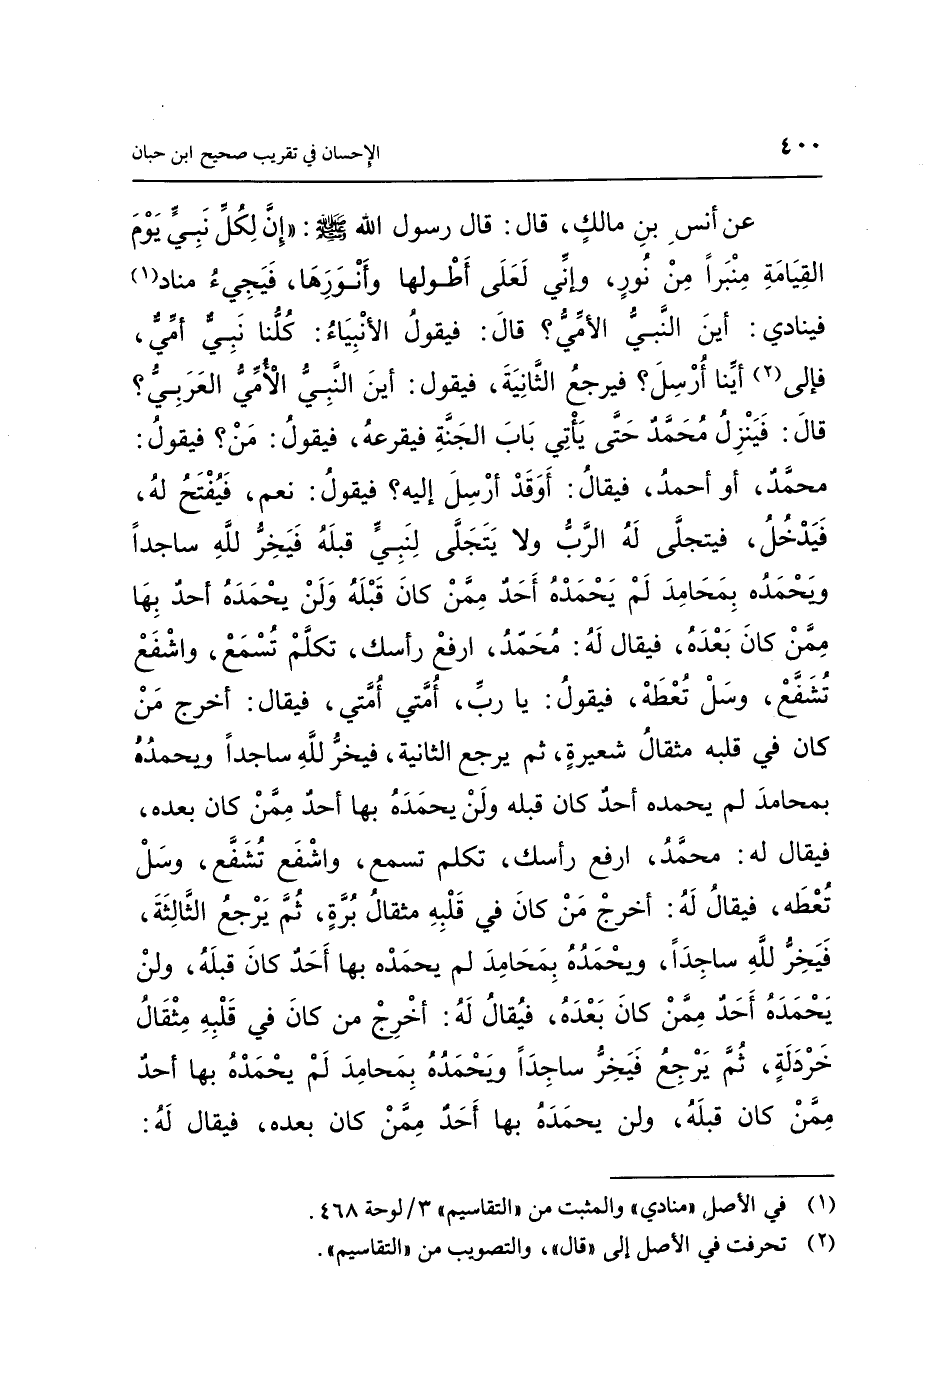 ٤٠٠ الإحسان في تقريب صحيح ابن حبان
عن أنسِ بنِ مالكٍ، قال: قال رسول الله ﷺ: «إِنَّ لِكُلِّ نَبِيٍّ يَوْمَ
القِيَامَةِ مِنْبَراً مِنْ نُورٍ، وإنِّي لَعَلَى أَطْولها وأَنْوَرَهَا، فَيَجِيءُ مناد(١)
فينادي: أينَ النَّبيُّ الأمِّيُّ؟ قالَ: فيقولُ الأنْبِيَاءُ: كُلُّنا نَبِيٌّ أمِّيٌّ،
فإلى(٢) أيِّنا أُرْسِلَ؟ فيرجعُ الثَّانِيَةَ، فيقول: أينَ النَّبِيُّ الْأُمِّيُّ العَرَبِيُّ؟
قالَ: فَيَنْزِلُ مُحَمَّدٌ حَتَّى يَأْتِي بَابَ الجَنَّةِ فيقرعهُ، فيقولُ: مَنْ؟ فيقولُ:
محمَّدٌ، أو أحمدُ، فيقالُ: أَوَقَدْ أرْسِلَ إليه؟ فيقولُ: نعم، فَيُفْتَحُ لهُ،
فَيَدْخُلُ، فيتجلَّى لَهُ الرَّبُّ ولا يَتَجَلَّى لِنَبِيٍّ قبلَهُ فَيَخِرُّ للَّهِ ساجداً
ويَحْمَدُه بِمَحَامِدَ لَمْ يَحْمَدْهُ أَحَدٌ مِمَّنْ كانَ قَبْلَهُ وَلَنْ يحْمَدَهُ أحدٌ بِهَا
مِمَّنْ كانَ بَعْدَهُ، فيقال لَهُ: مُحَمّدُ، ارفعْ رأسك، تكلَّمْ تُسْمَعْ، واشْفَعْ
تُشَفَّعْ، وسَلْ تُعْطَهْ، فيقولُ: يا ربِّ، أُمَّتي أُمَّتي، فيقال: أخرج مَنْ
كان في قلبه مثقالُ شعيرةٍ، ثم يرجع الثانية، فيخرُّ للَّهِ ساجداً ويحمدُهُ
بمحامدَ لم يحمده أحدٌ كان قبله ولَنْ يحمَدَهُ بها أحدٌ مِمَّنْ كان بعده،
فيقال له: محمَّدُ، ارفع رأسك، تكلم تسمع، واشْفَع تُشَفَّع، وسَلْ
تُعْطَه، فيقالُ لَهُ: أخرجْ مَنْ كانَ في قَلْبِهِ مثقالُ بُرَّةٍ، ثُمَّ يَرْجعُ الثَّالِثَةَ،
فَيَخِرُّ للَّهِ ساجِدَاً، ويحْمَدُهُ بِمَحَامِدَ لم يحمَدْه بها أَحَدٌ كانَ قبلَهُ، ولنْ
يَحْمَدَهُ أَحَدٌ مِمَّنْ كانَ بَعْدَهُ، فيُقالُ لَهُ: أخْرِجْ من كانَ في قَلْبِهِ مِثْقَالُ
خَرْدَلَةٍ، ثُمَّ يَرْجِعُ فَيَخِرُّ ساجِدَاً ويَحْمَدُهُ بِمَحامِدَ لَمْ يحْمَدْهُ بها أحدٌ
مِمَّنْ كان قبلَهُ، ولن يحمَدَهُ بها أَحَدٌ مِمَّنْ كان بعده، فيقال لَهُ:
(١) في الأصل «منادي» والمثبت من «التقاسيم» ٣/لوحة ٤٦٨.
(٢) تحرفت في الأصل إلى «قال»، والتصويب من «التقاسيم».